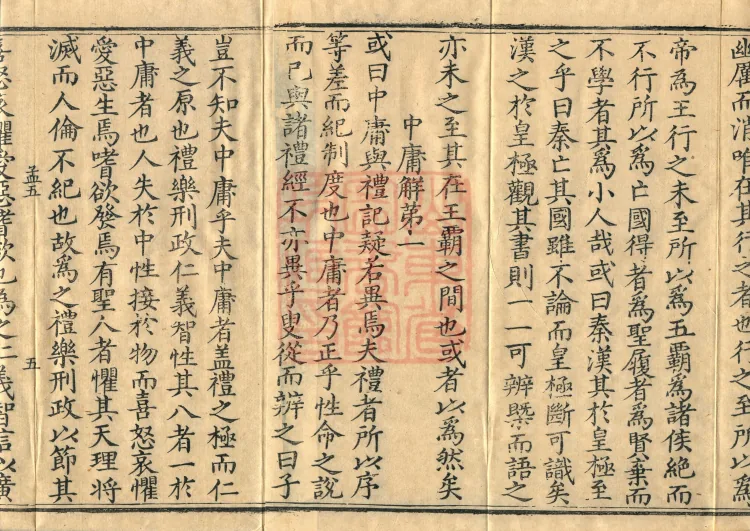 幽厲而消唯在其行之者也行之至所以為
帝為王行之未至所以為五霸為諸侯絕而
不行所以為亡國得者為聖履者為賢棄而
不學者其為小人哉或曰秦漢其於皇極至
之乎曰秦亡其國雖不論而皇極斷可識矣
漢之於皇極觀其書則一一可辨槩而語之
亦未之至其在王霸之間也或者以為然矣
中庸解第一
或曰中庸與禮記疑若異焉夫禮者所以序
等差而紀制度也中庸者乃正乎性命之說
而已與諸禮經不亦異乎叟從而辨之曰子
豈不知夫中庸乎夫中庸者盖禮之極而仁
義之原也禮樂刑政仁義智性其八者一於
中庸者也人失於中性接於物而喜怒哀懼
愛惡生焉嗜欲發焉有聖人者懼其天理將
滅而人倫不紀也故為之禮樂刑政以節其
孟五 五
喜怒哀懼愛惡嗜欲也為之仁義智信以廣